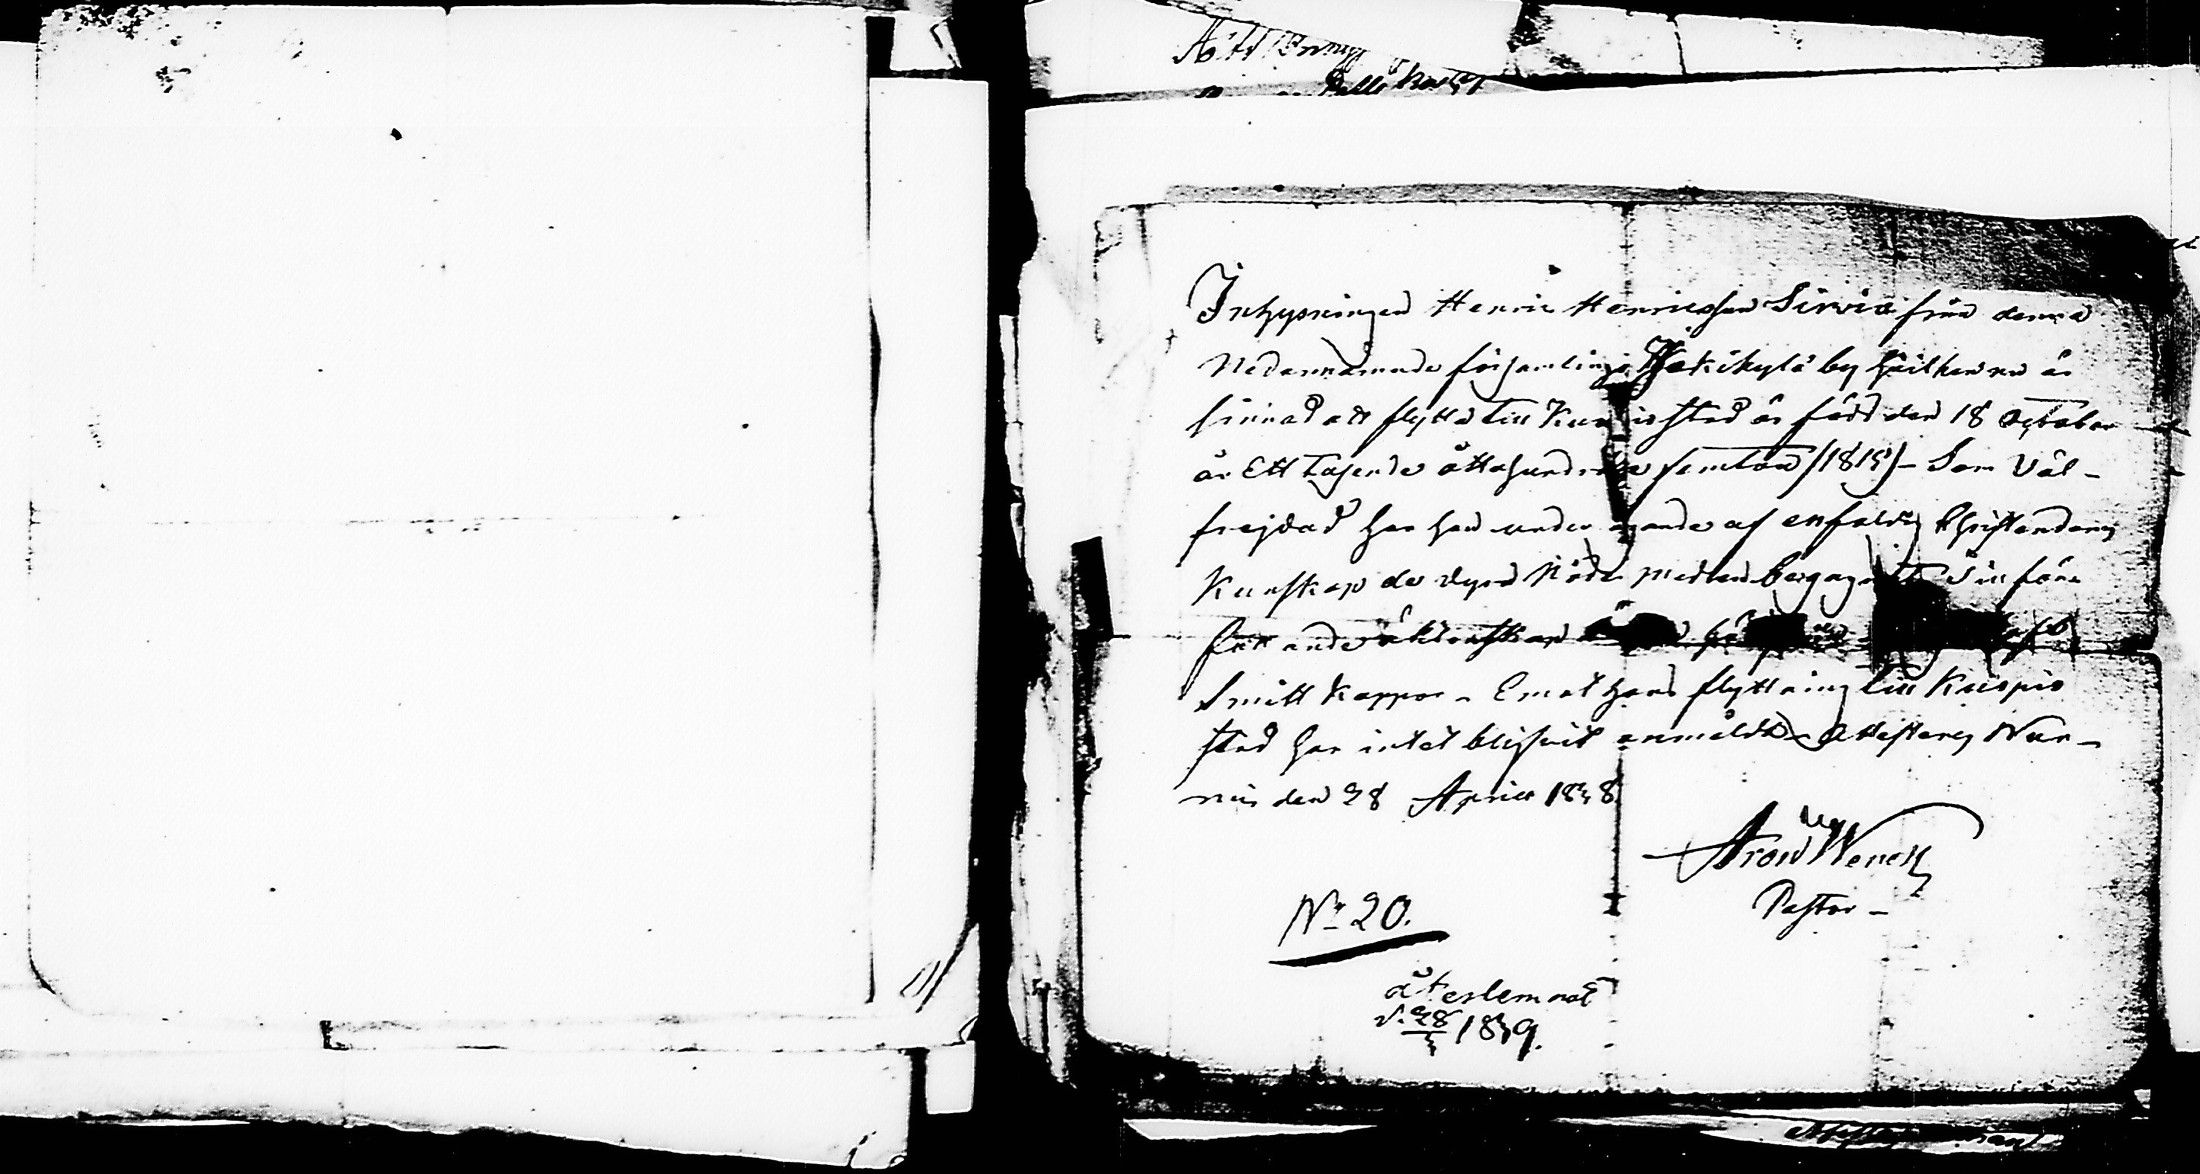 Inhysningen Henric Henricsson Sirviö från denna
Nedannämnde församlings Jäkikylä by hvilken nu är
sinnad att flytta till Kuopio stad är född den 18 October
år Ett Tusende åttahundrade femton /1815/ - Som Väl-
frejdad har han under ägande af enfaldig Christendoms
Kunskap de dyra Nåde medlen begagnat införe
ande äktenskap
Smitt Koppor - Emot hans flyttning till Kuopio
stad har intet blifvit anmäldt - Attesterar Nur-
mis den 28 April 1838
Aron Wenell
Pastor -
No 20.
återlemnat
d. 28/5 1839.